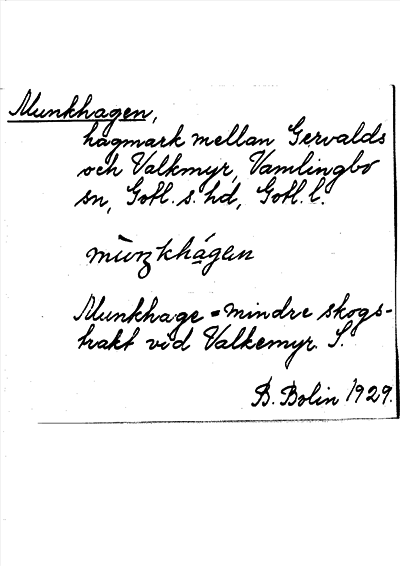 Munkhagen,
hagmark mellan Gervalds
och Valkmyr, Vamlingbo
sn, Gotl. s. hd, Gotl. l.
mùŋkhágen
Munkhage = mindre skogs-
trakt vid Valkemyr. S.
B. Bolin 1929.